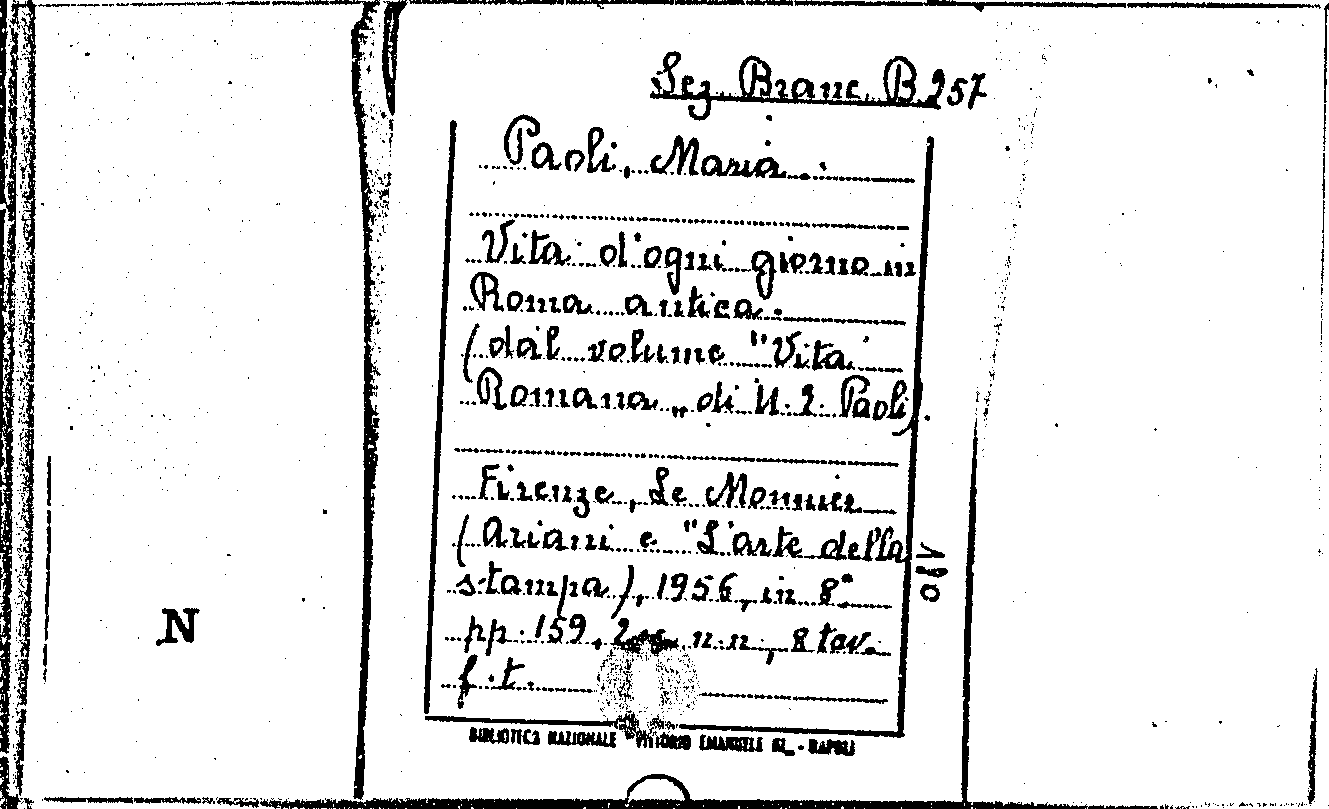 Sez. Branc. B 257
Paoli, Maria.
Vita d'ogni giorno in
Roma antica.
(dal volume "Vita
Romana„ di U. E. Paoli).
Firenze, Le Monnier
(Ariani e "L'arte della
stampa), 1956, in 8°
pp. 159, 2 n.n., 8 tav.
f.t.
N
BIBLIOTECA NAZIONALE "VITTORIO EMANUELE III„ - NAPOLI